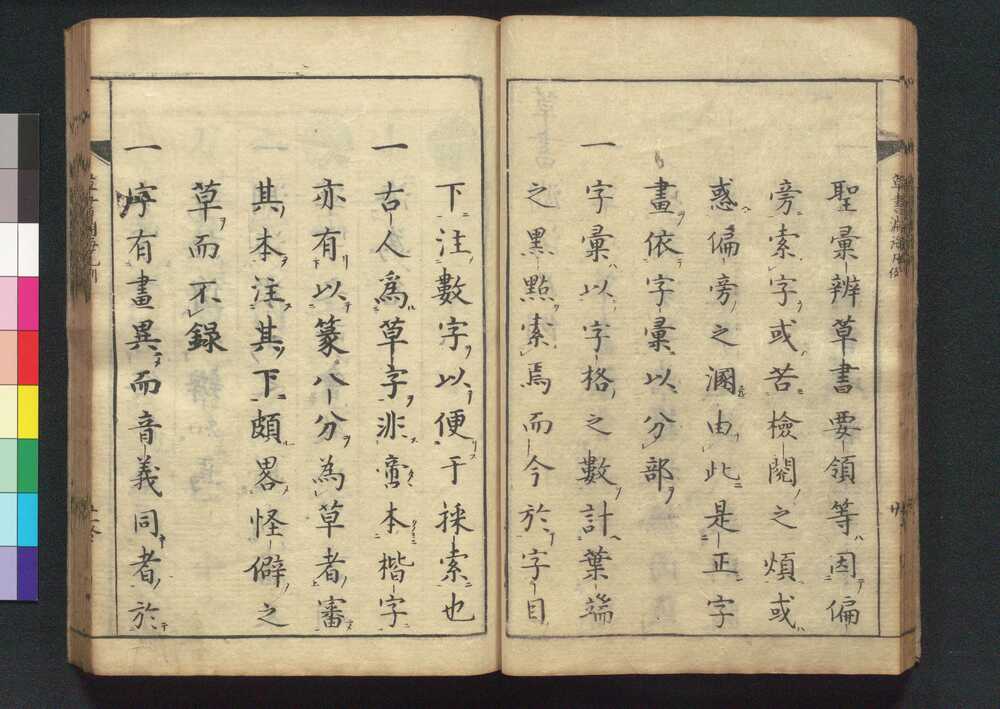 聖彙辨草書要領等因偏
旁索字或苦檢閱之煩或
惑偏旁之溷由此是正字
畫依字彙以分部
一字彙以字格之數計葉端
之黒點索焉而今於字目
下注數字以便于採索也
一古人爲草字非啻本楷字
亦有以篆八分為草者審
其本注其下頗畧怪僻之
草而不録
一字有畫異而音義同者於